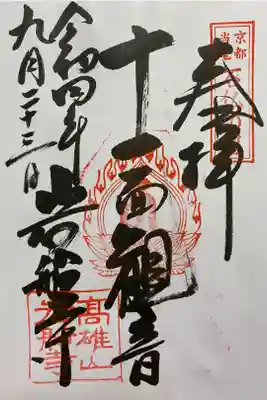 奉拝
十一面觀音
岩船寺
令和四年
九月二十三日
京都
高雄山
岩船寺